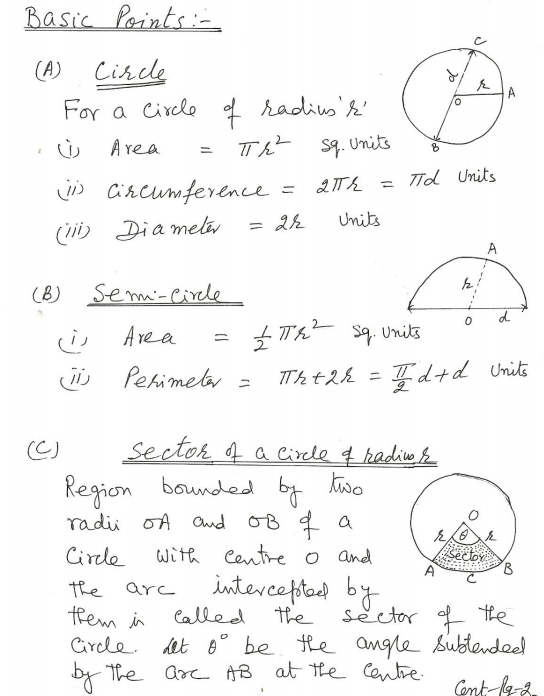 Basic Points:-
(A) Circle
For a circle of radius 'r'
(i) Area = πr² sq. units
(ii) Circumference = 2πr = πd units
(iii) Diameter = 2r units
C
d
r
O
A
B
(B) Semi-circle
(i) Area = 1/2 πr² sq. units
(ii) Perimeter = πr+2r = π/2 d+d units
A
r
O
d
(C) Sector of a circle of radius r
Region bounded by two
radii OA and OB of a
circle with centre O and
the arc intercepted by
them is called the sector of the
circle. Let θ° be the angle subtended
by the arc AB at the centre.
O
r
θ
r
Sector
A
C
B
Cont-Pg-2